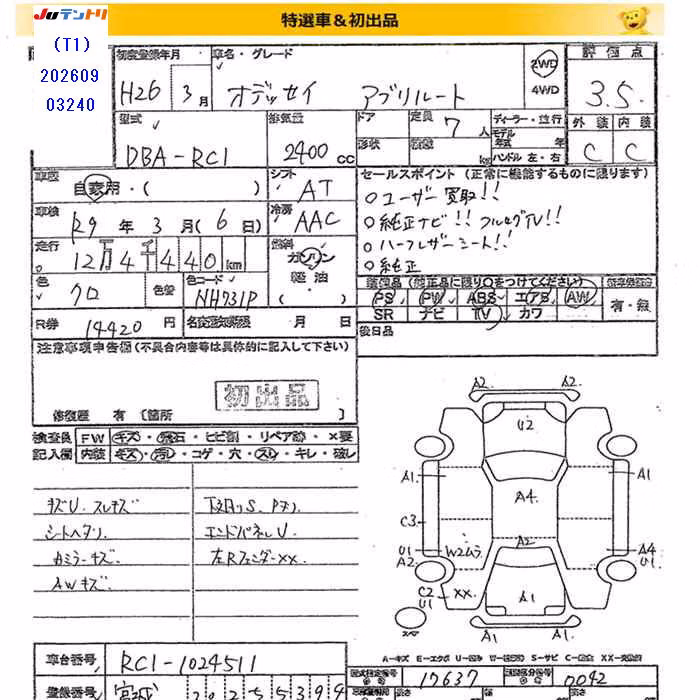 JUテントリ
特選車＆初出品
(T1)
202609
03240
初度登録年月
H26 3月
車名・グレード
オデッセイ アブソルート
2WD
4WD
評価点
3.5
型式
DBA-RC1
排気量
2400 cc
ドア
形状
定員
7人
積載
kg
ディーラー・並行
モデル年式 年式
ハンドル 左・右
外装 内装
C C
車歴
自家用・( )
シフト
AT
セールスポイント(正常に機能するものに限ります)
○ユーザー買取!!
○純正ナビ!! フルセグTV!!
○ハーフレザーシート!!
○純正
車検
R9年 3月(6日)
冷房
AAC
走行
12万4千440km
燃料
ガソリン
軽油
( )
色
クロ
色替
色コード
NH731P
装備品(純正品に限り○をつけてください)
PS PW ABS エアB AW
SR ナビ TV カワ
有・無
R券 14420円
名変期限 月 日
後日品
注意事項申告欄(不具合内容等は具体的に記入して下さい)
初出品
修復歴 有 [箇所 ]
検査員
記入欄
FW キズ・飛石・ヒビ割・リペア跡・×要
内装 キズ・汚レ・コゲ・穴・スレ・キレ・破レ
キズU. スレキズ
シートヘタリ
カミラーキズ
AWキズ
下廻りS. Pメン
エンドパネルU.
左Rフェンダーxx.
A2 A2
U2
A1 A1
A4
C3
A2
U1
A2
W2ムラ
A4
U1
C2
U1
XX.
A1
スペア
A1 A1
A−キズ E−エクボ U−凹み W−補修跡 S−サビ C−腐食 XX−交換済
車台番号 RC1-1024511
型式指定番号 17637
類別区分番号 0042
登録番号 宮城
自動車重量税
長さ
高さ